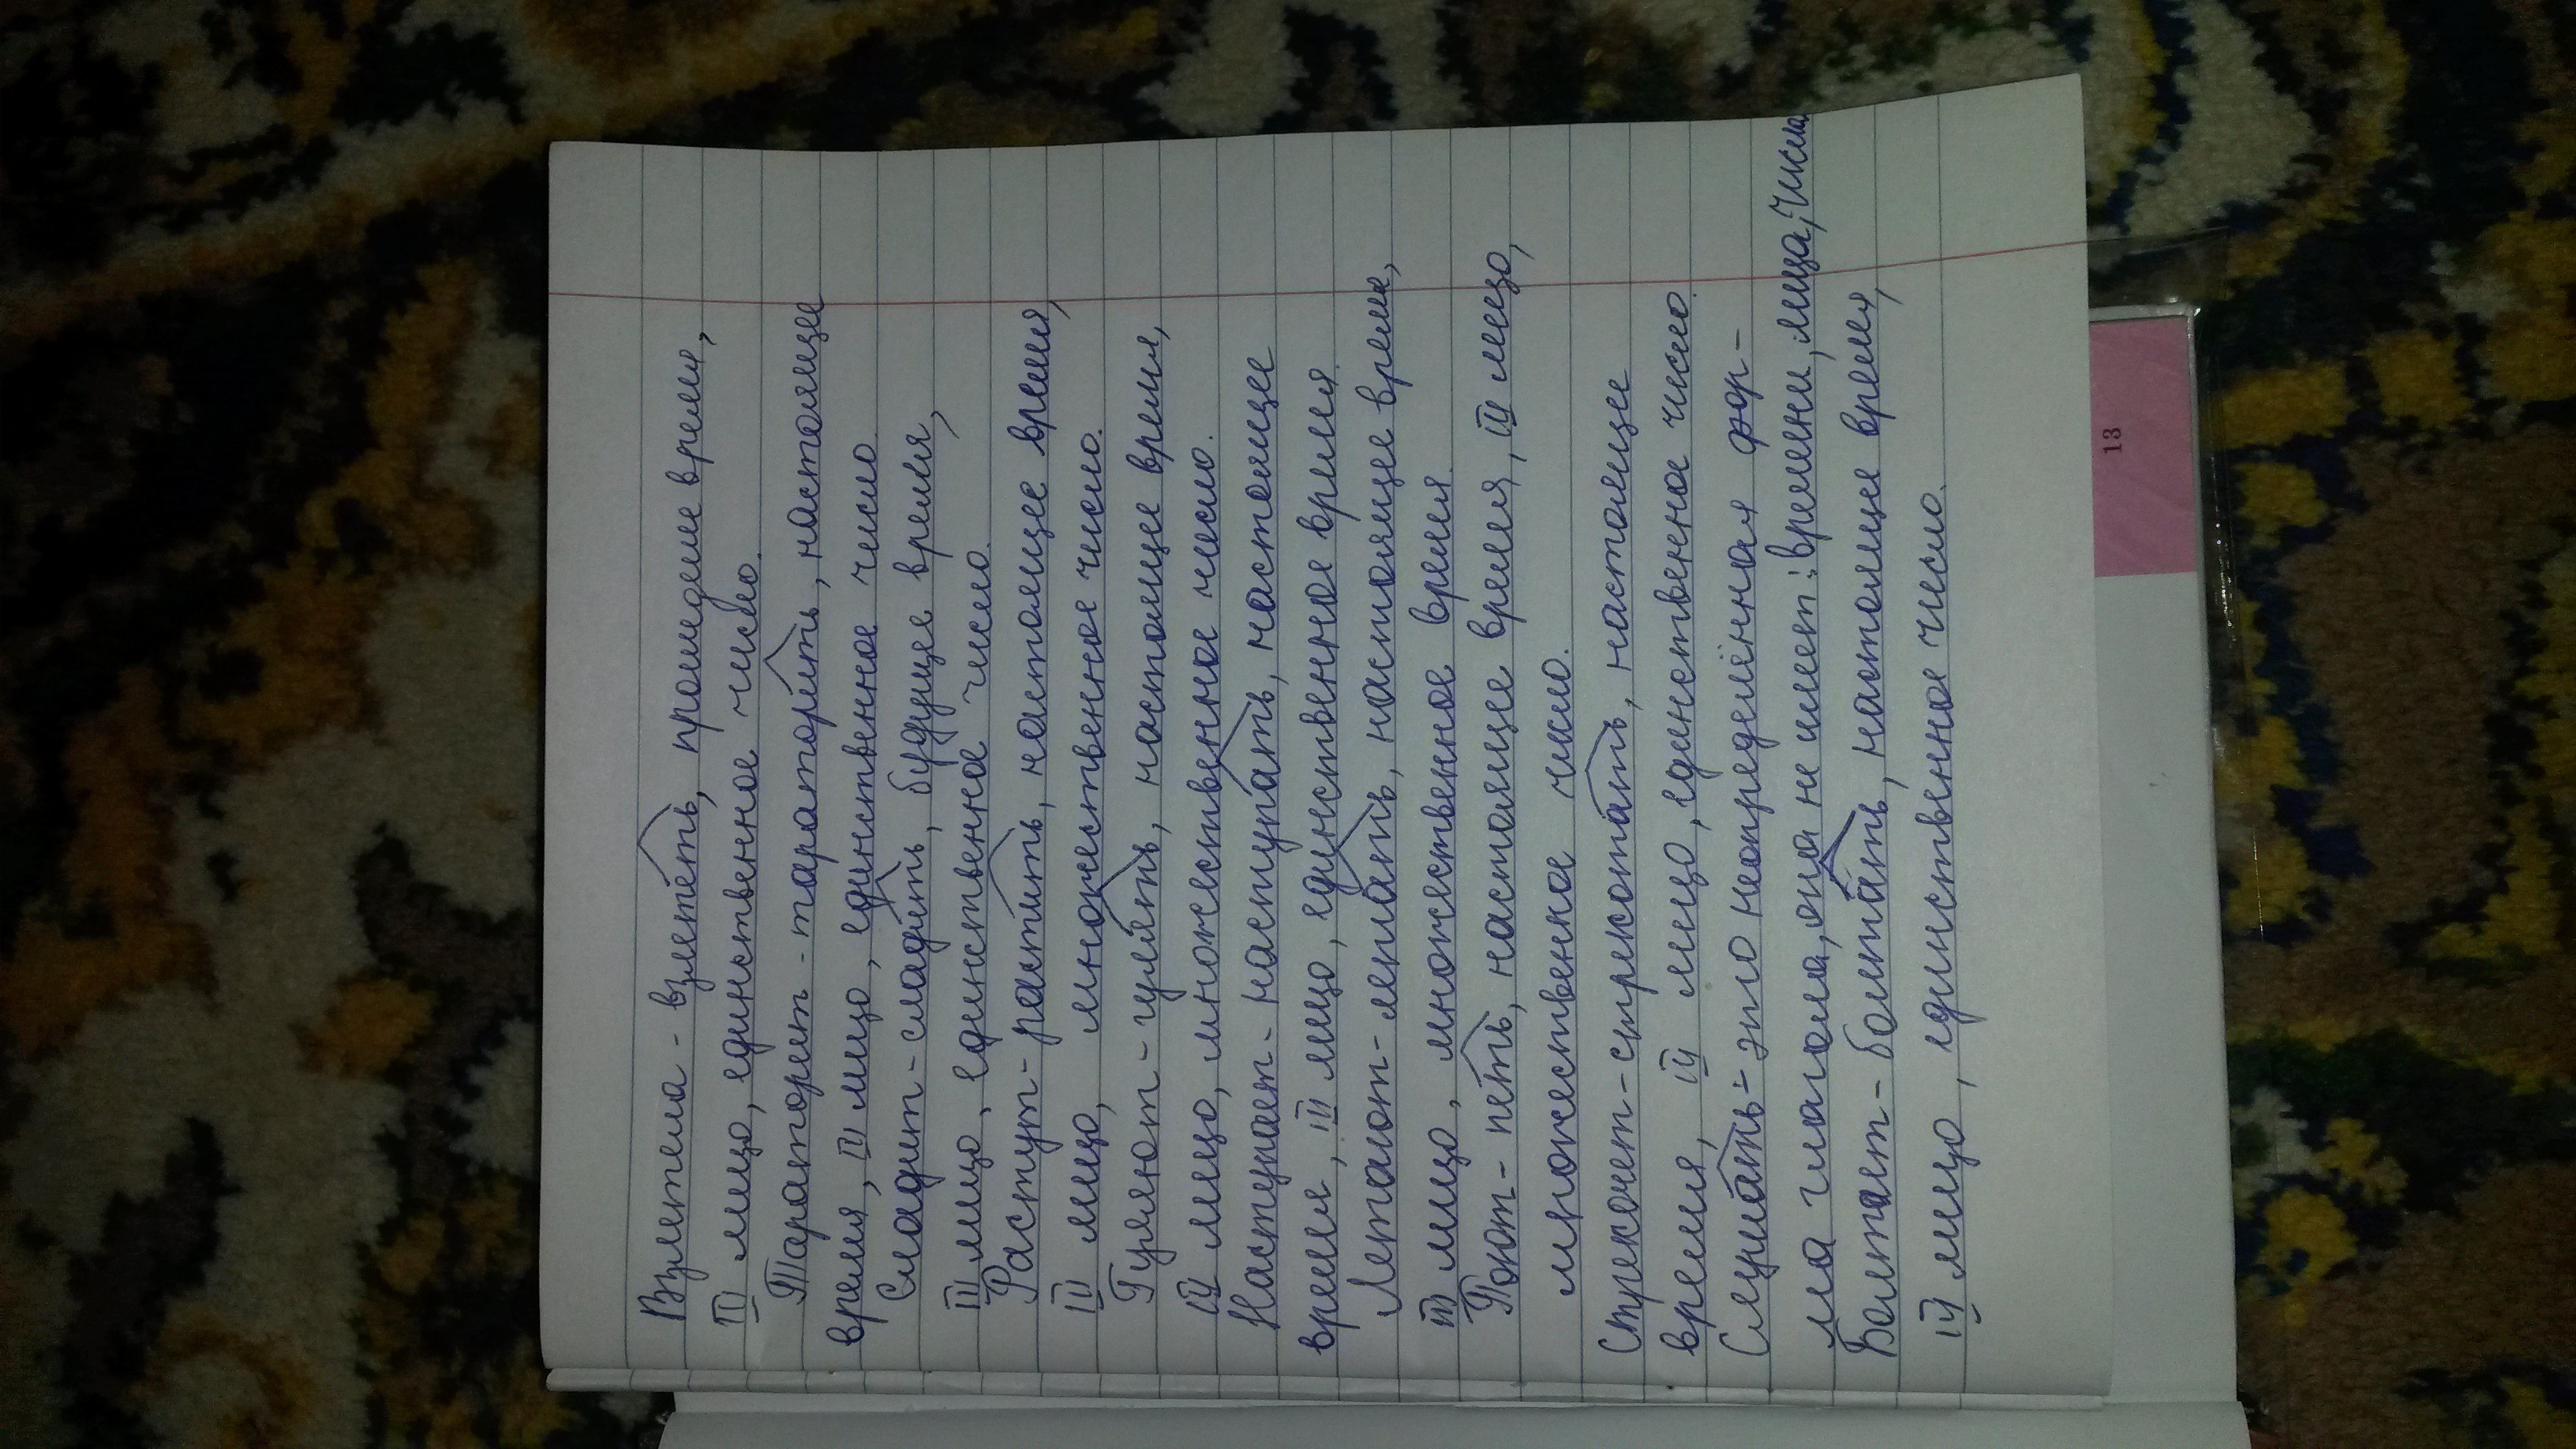 Взлетела - взлететь, прошедшее время,
III лицо, единственное число.
Тараторит - тараторить, настоящее
время, III лицо, единственное число.
Сладит - сладить, будущее время,
III лицо, единственное число.
Растут - растить, настоящее время,
III лицо, множественное число.
Гуляют - гулять, настоящее время,
III лицо, множественное число.
Наступает - наступать, настоящее
время, III лицо, единственное время.
Летают - летать, настоящее время,
III лицо, множественное время.
Поют - петь, настоящее время, III лицо,
множественное число.
Стрекочет - стрекотать, настоящее
время, III лицо, единственное число.
Слушать - это неопределённая фор-
ма глагола, она не имеет: времени, лица, числа
Болтает - болтать, настоящее время,
III лицо, единственное число.
13